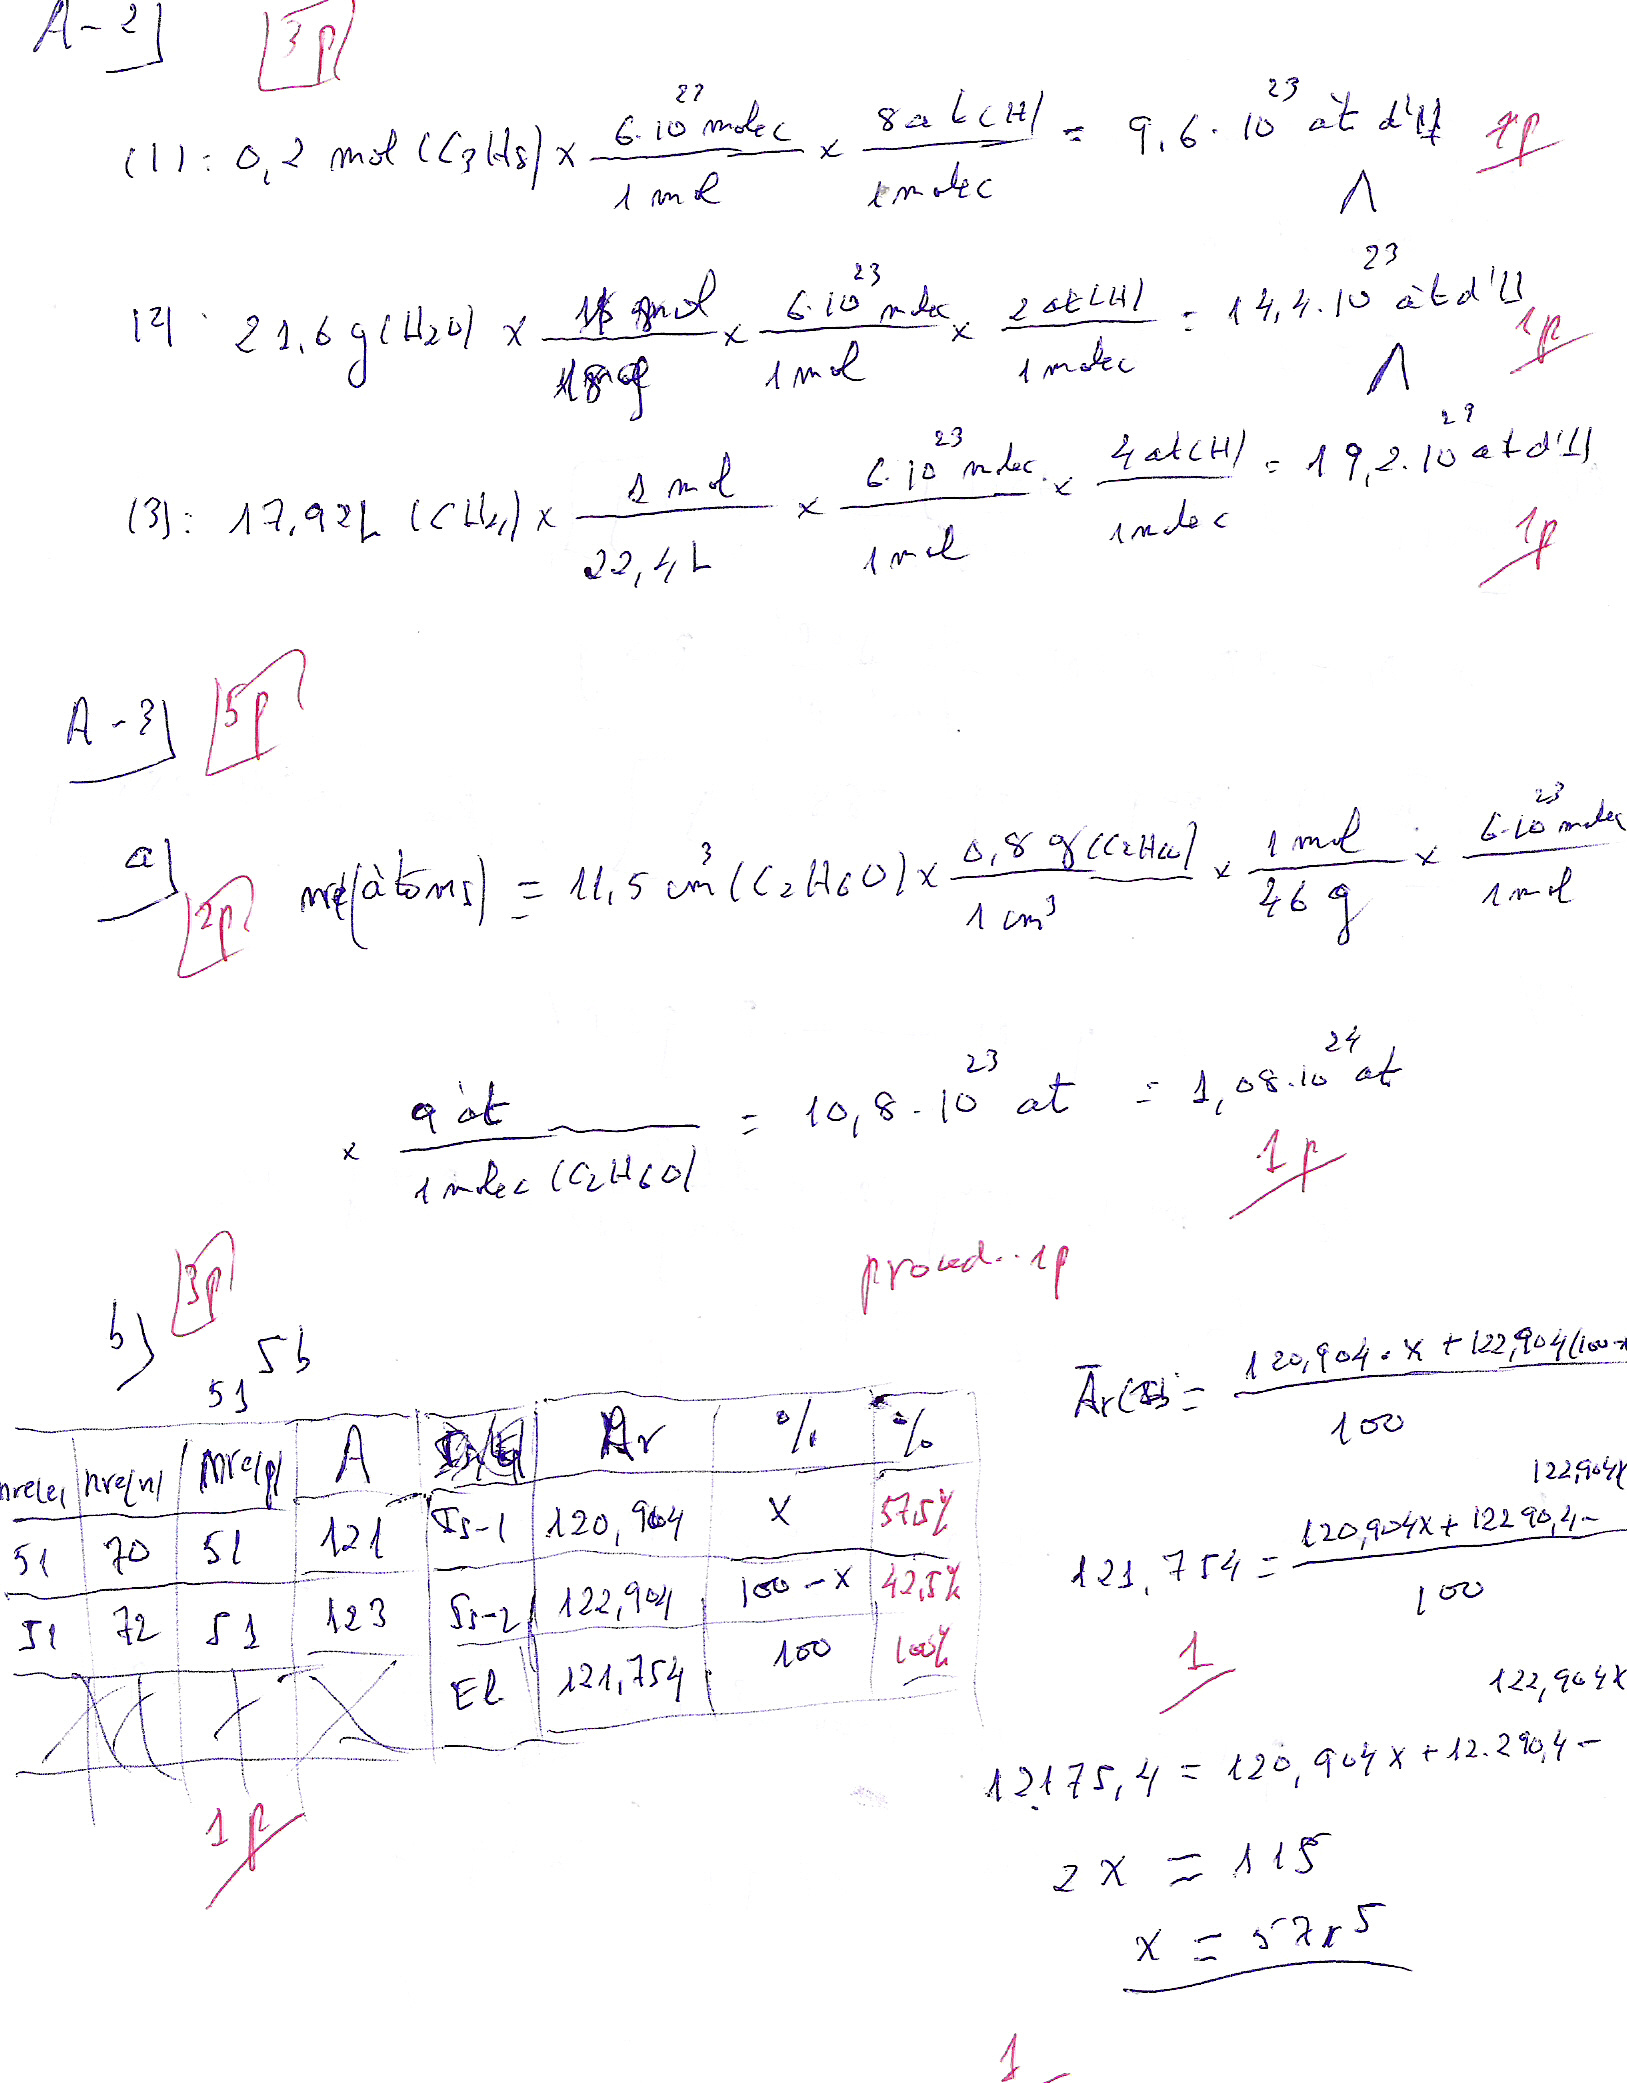 A-2] 3p
(1): 0,2 mol (C3H8) x 6·10^23 molec / 1 mol x 8 at (H) / 1 molec = 9,6·10^23 àt d'H 1p
Λ
(2): 21,6 g (H2O) x 1 mol / 18 g x 6·10^23 molec / 1 mol x 2 at (H) / 1 molec = 14,4·10^23 àt d'H 1p
Λ
(3): 17,92 L (CH4) x 1 mol / 22,4 L x 6·10^23 molec / 1 mol x 4 at (H) / 1 molec = 19,2·10^23 at d'H 1p
A-3] 5p
a] 2p nre(àtoms) = 11,5 cm^3 (C2H6O) x 0,8 g (C2H6O) / 1 cm^3 x 1 mol / 46 g x 6·10^23 molec / 1 mol
x 9 àt / 1 molec (C2H6O) = 10,8·10^23 at = 1,08·10^24 at
1p
proced.. 1p
b) 3p
51 Sb
nre(e) nre(n) nre(p) A Ar % %
51 70 51 121 Is-1 120,904 x 57,5%
51 72 51 123 Is-2 122,904 100-x 42,5%
El 121,754 100 100%
1p
Ār(Sb) = 120,904·x + 122,904(100-x / 100
121,754 = 120,904x + 12290,4 - 122,904x / 100
1
12175,4 = 120,904x + 12.290,4 - 122,904x
2x = 115
x = 57,5
1